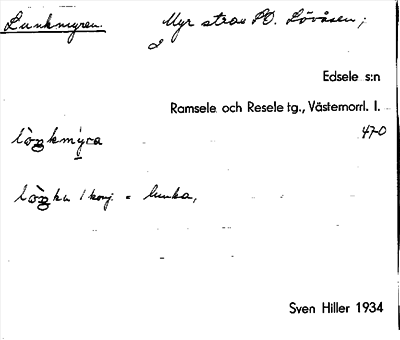 Lunkmyren. Myr strax SO. Lövåsen;
Edsele s:n
Ramsele och Resele tg., Västernorrl. l.
47-0
lo̊ŋkmyra
lo̊ŋka 1 konj. = lunka,
Sven Hiller 1934